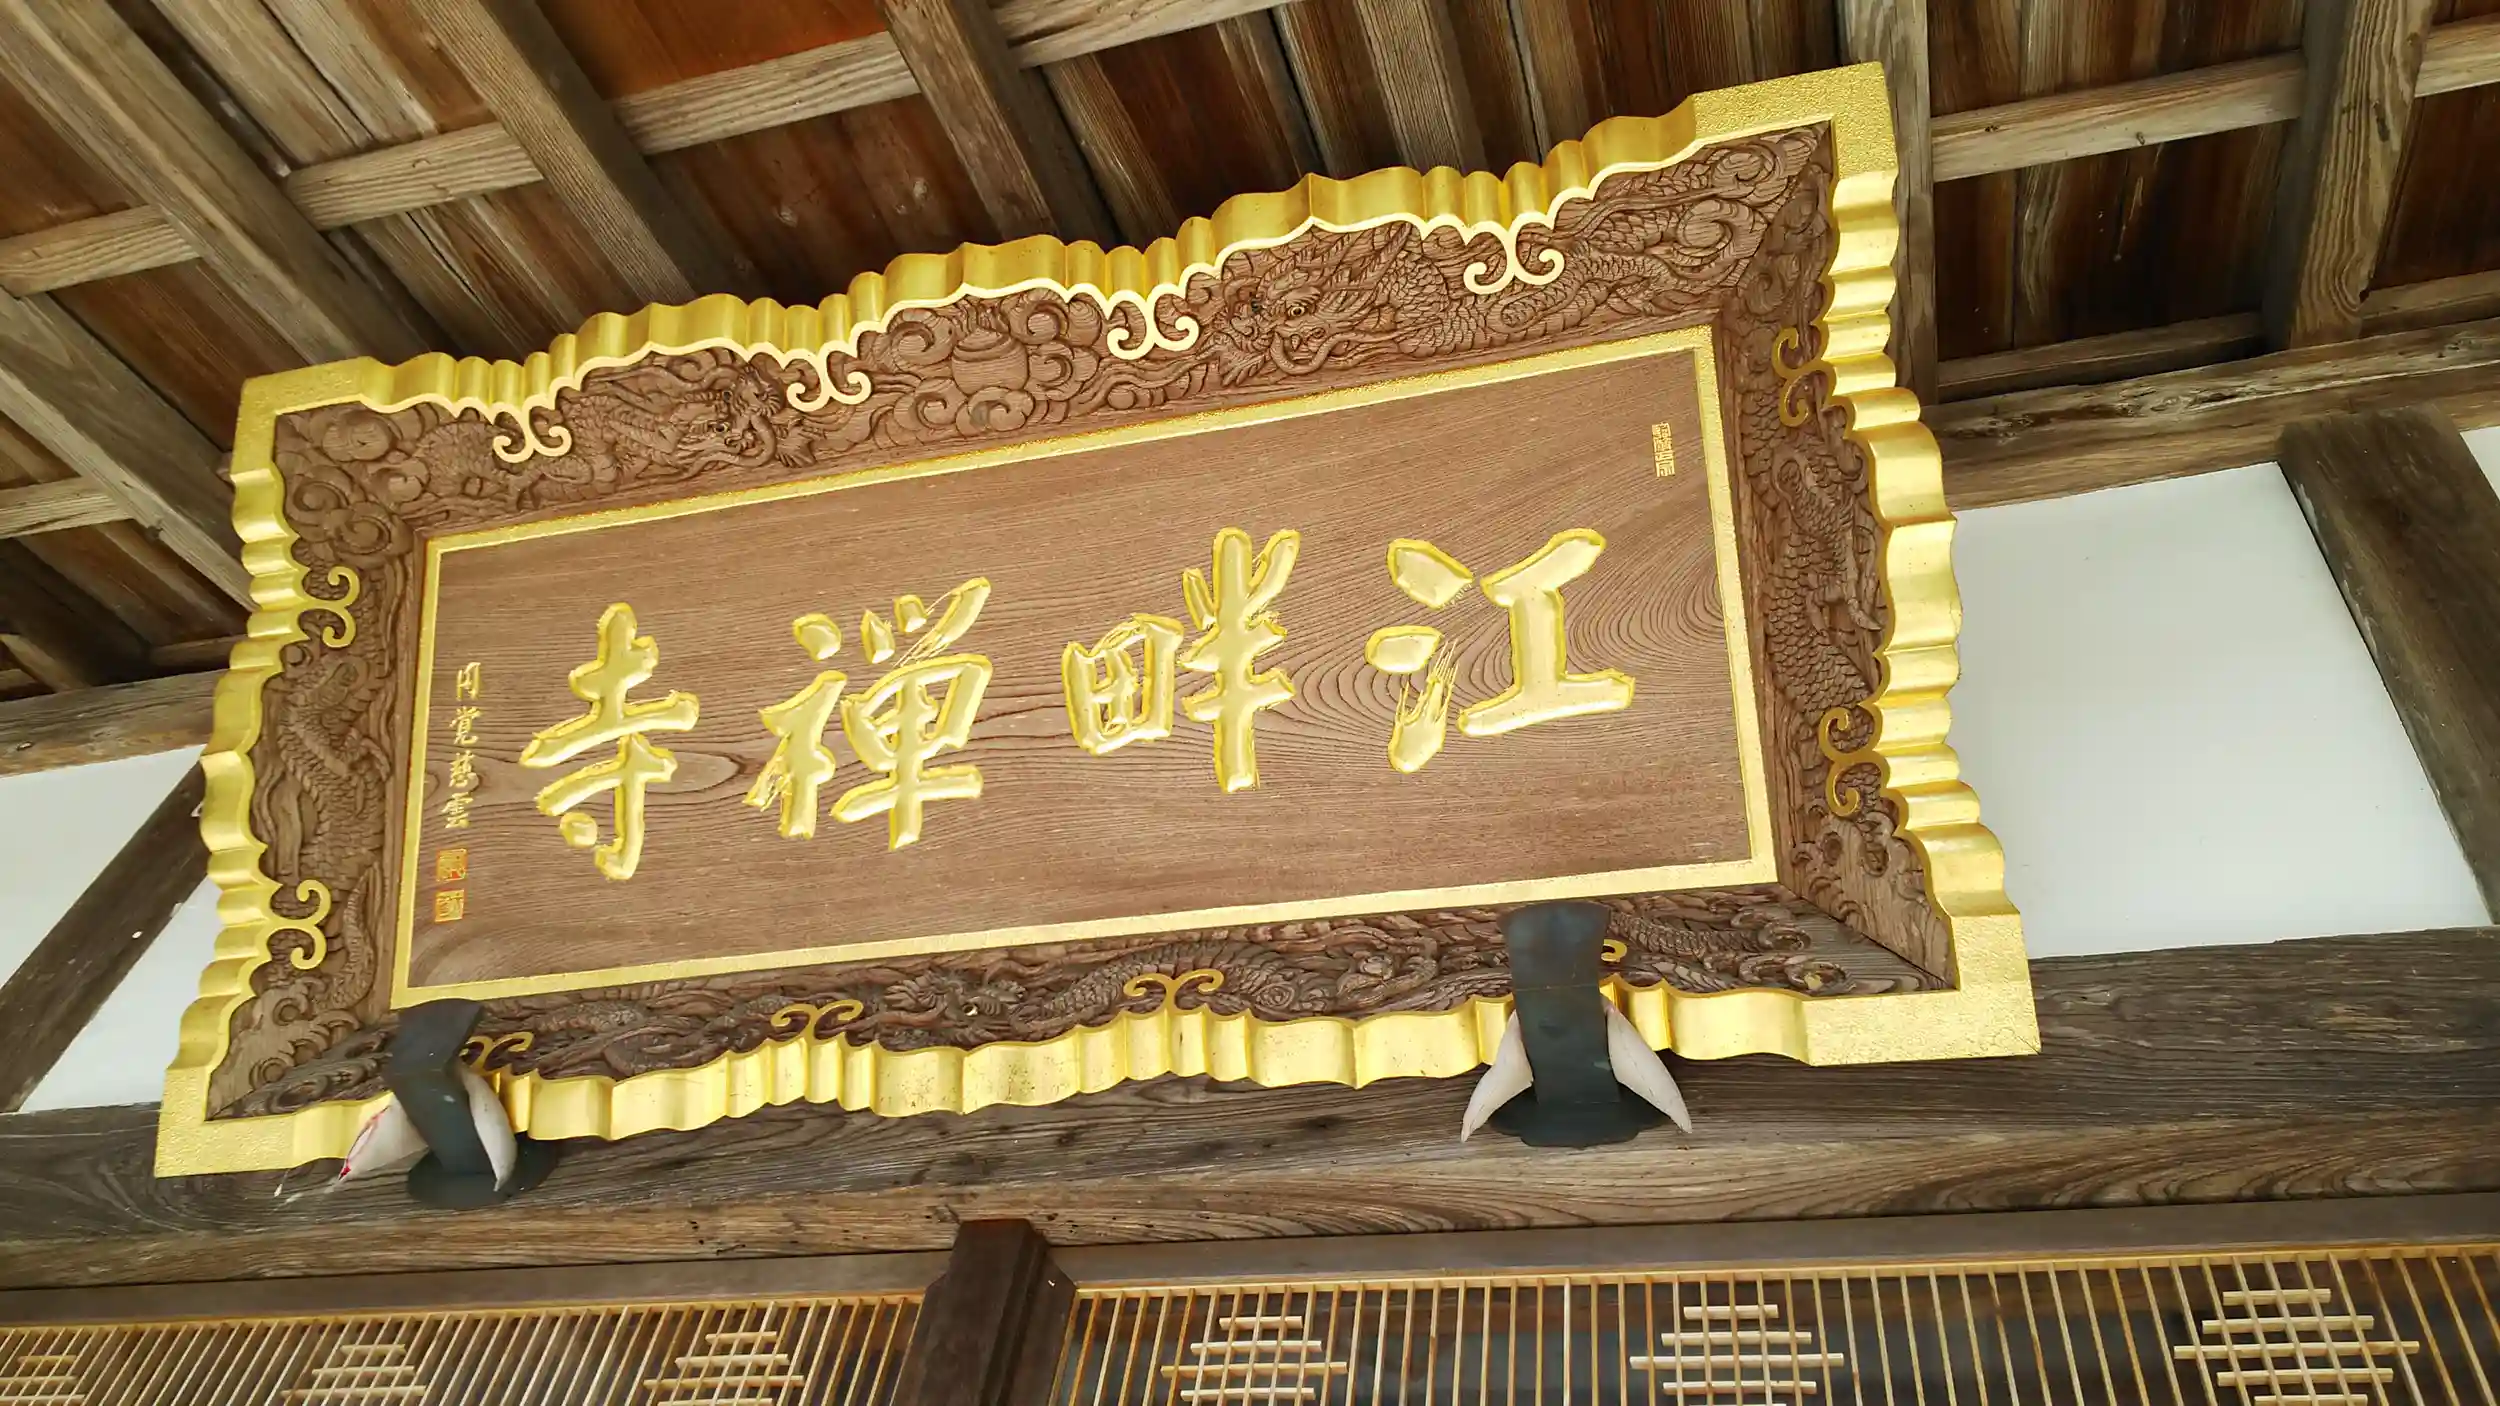 江畔禅寺
円覚慈雲